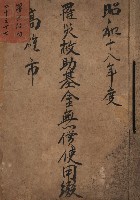 昭和十八年度
罹災救助基金無償使用綴
高雄市